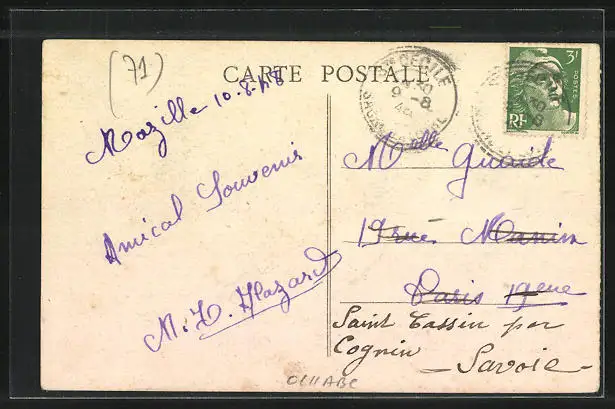 (71)
CARTE POSTALE
Mazille 10.8.48
Amical Souvenir
M. T. Hazard
STE CECILE
9-8
3F
POSTES
RF
Melle Guaide
19 rue Manin
Paris 19eme
Saint Cassin par
Cognin - Savoie -